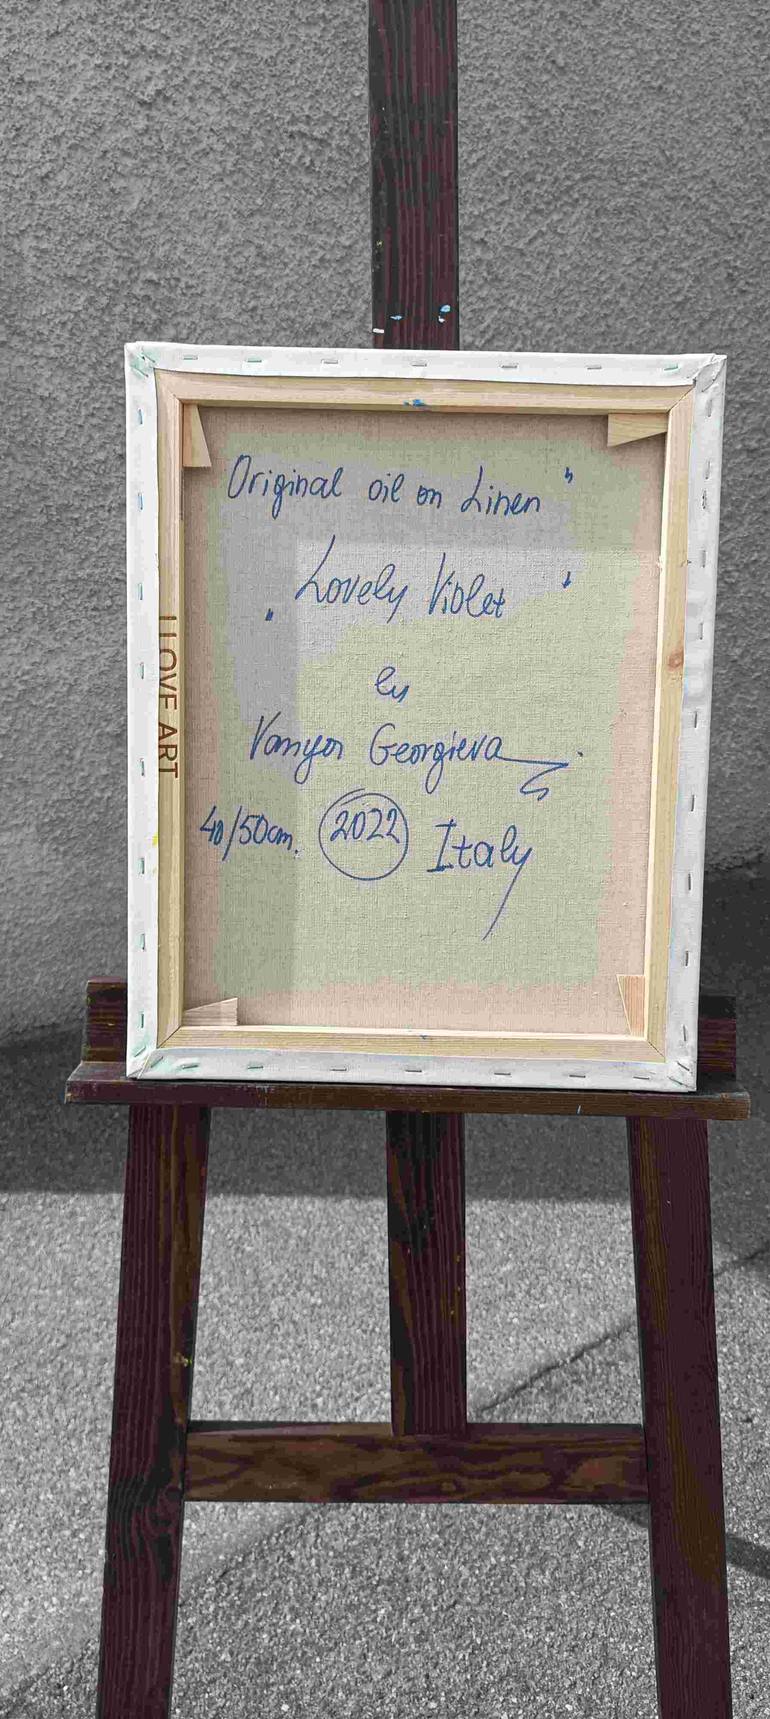 Original oil on Linen"
„Lovely Violet"
by
Vanya Georgieva
40/50cm. 2022 Italy
I LOVE ART